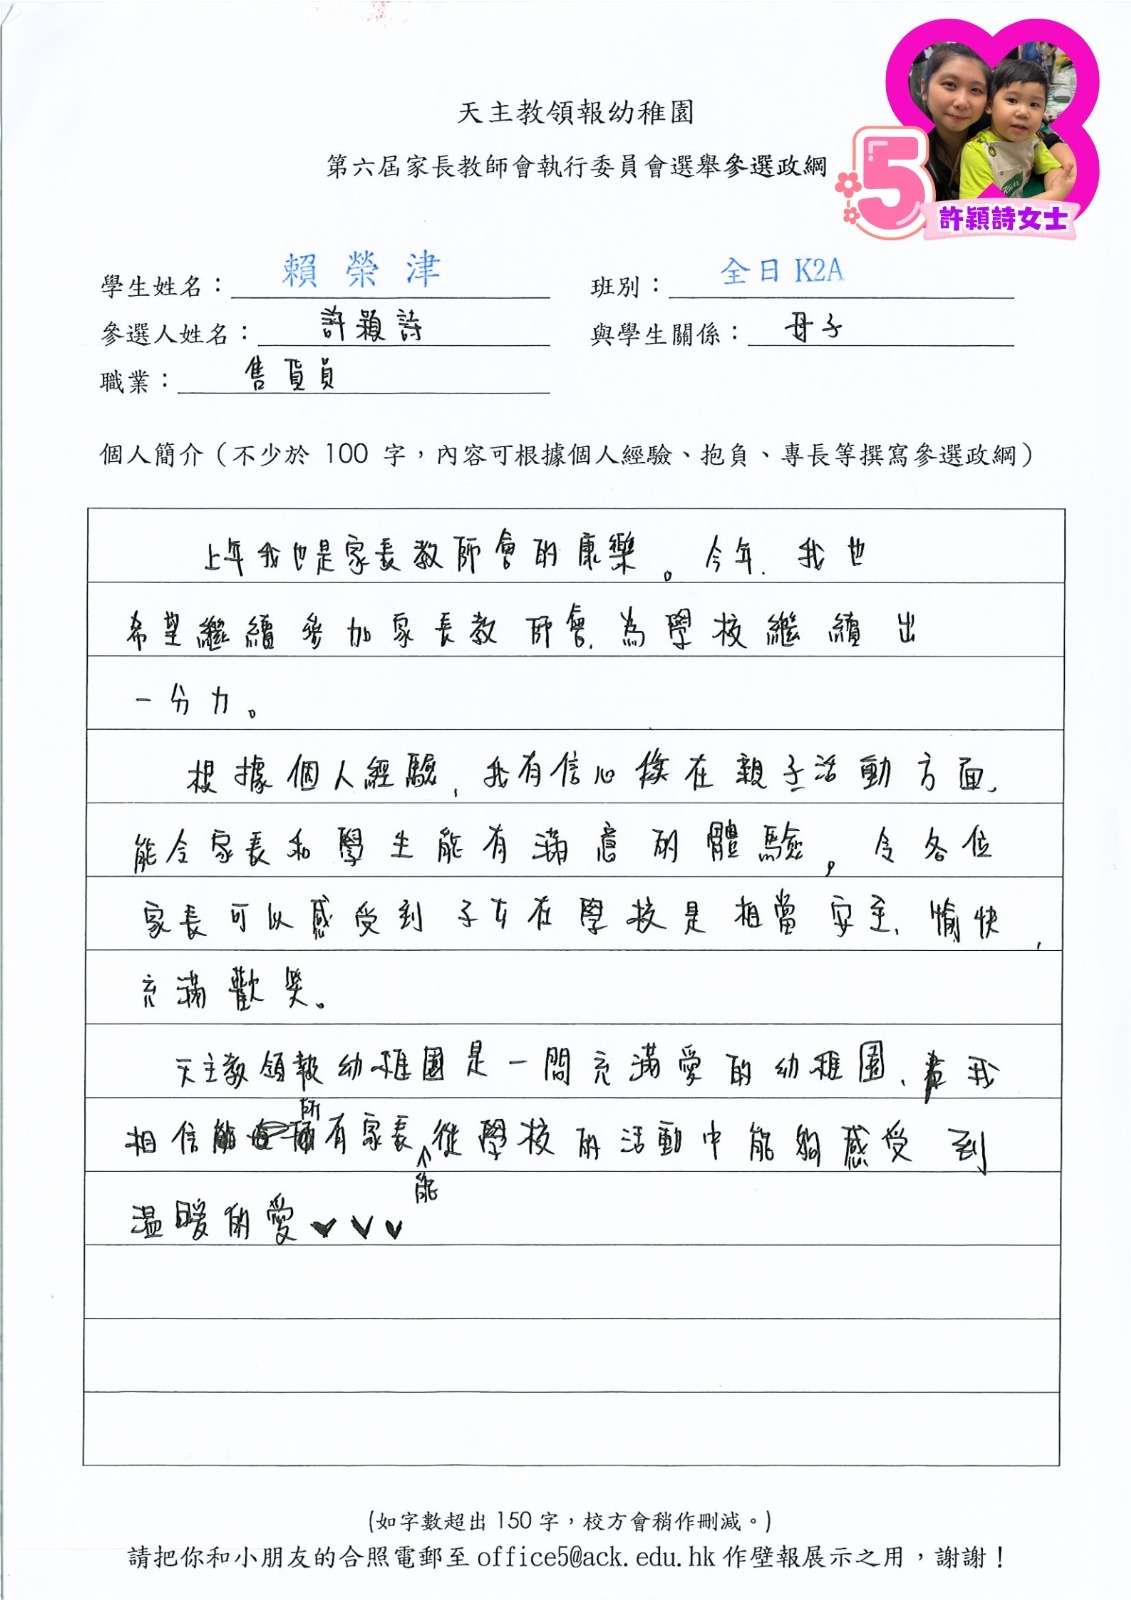 天主教領報幼稚園
第六屆家長教師會執行委員會選舉參選政綱
5
許穎詩女士
學生姓名：賴榮津 班別：全日 K2A
參選人姓名：許穎詩 與學生關係：母子
職業：售貨員
個人簡介（不少於 100 字，內容可根據個人經驗、抱負、專長等撰寫參選政綱）
上年我也是家長教師會的康樂。今年，我也
希望繼續參加家長教師會，為學校繼續出
一分力。
根據個人經驗，我有信心在親子活動方面，
能令家長和學生能有滿意的體驗，令各位
家長可以感受到子女在學校是相當安全、愉快，
充滿歡笑。
天主教領報幼稚園是一間充滿愛的幼稚園、我
相信所有家長能從學校的活動中能夠感受到
溫暖的愛♥♥♥
(如字數超出 150 字，校方會稍作刪減。)
請把你和小朋友的合照電郵至 office5@ack.edu.hk 作壁報展示之用，謝謝！